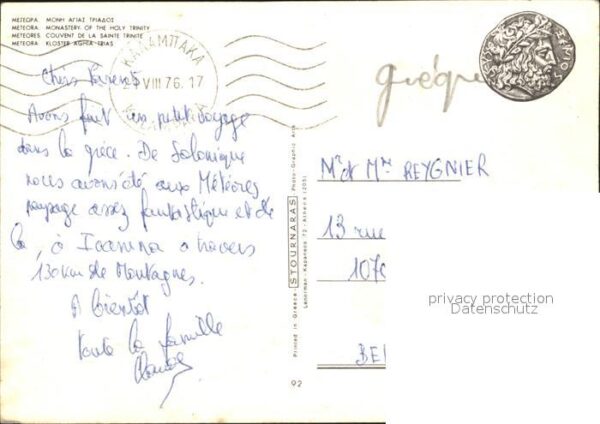 ΜΕΤΕΩΡΑ ΜΟΝΗ ΑΓΙΑΣ ΤΡΙΑΔΟΣ
METEORA: MONASTERY OF THE HOLY TRINITY
METEORES: COUVENT DE LA SAINTE TRINITE
METEORA: KLOSTER AGHIA TRIAS
ΚΑΛΑΜΠΑΚΑ
VIII 76. 17
Chers Parents
Avons fait un petit voyage
dans la grèce. De Salonique
nous avons été aux Météores
paysage assez fantastique et de
là, à Ioannina a travers
130 km de Montagnes.
A bientôt
toute la famille
Claude
92
Printed in Greece STOURNARAS Photo-Graphic Arts
Lenorman - Kapaneos 72 - Athens (205)
grèque
Mr et Mme REYGNIER
13 rue
1070
BE
privacy protection
Datenschutz